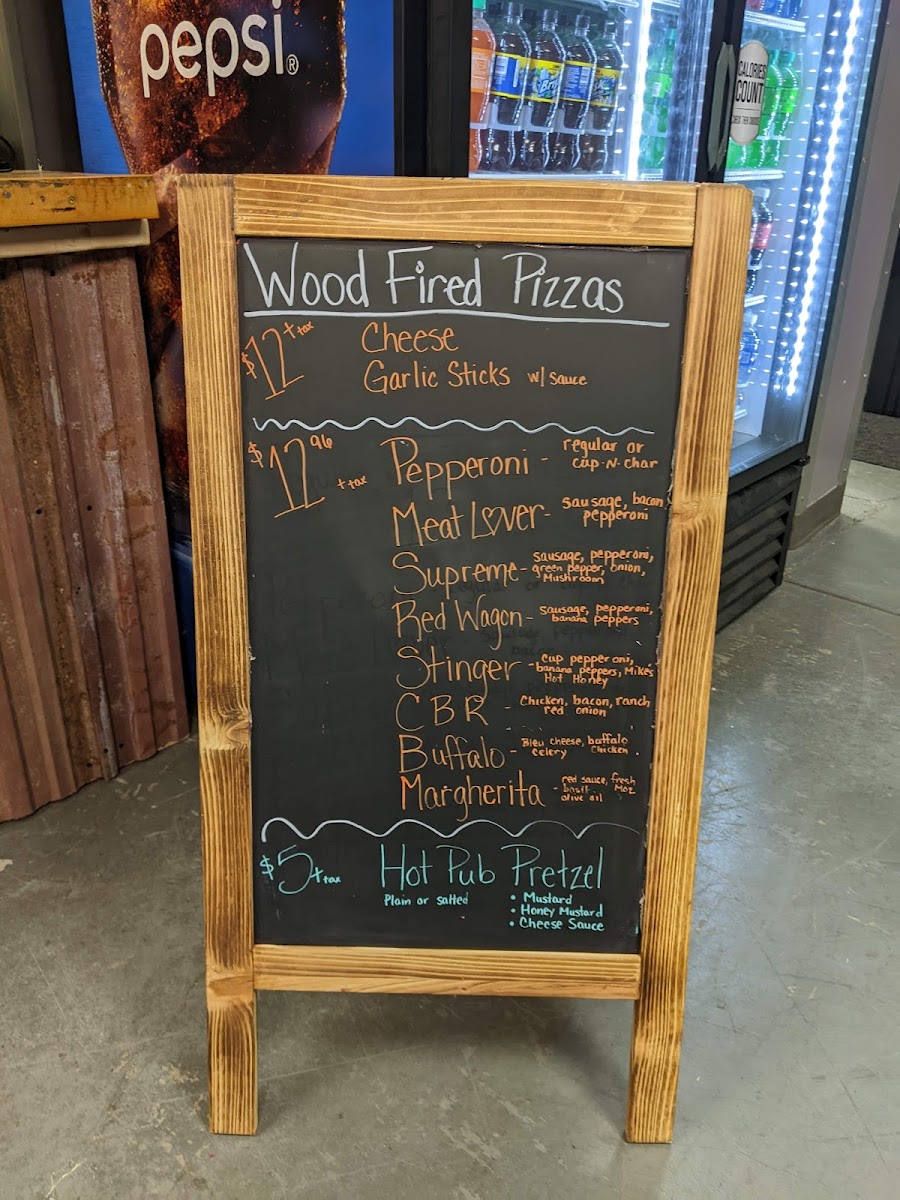 pepsi®
CALORIES
COUNT
Wood Fired Pizzas
$12 + tax
Cheese
Garlic Sticks w/ sauce
$12 96 + tax
Pepperoni - regular or
cup-N-char
Meat Lover - Sausage, bacon,
pepperoni
Supreme - sausage, pepperoni,
green pepper, onion,
Mushroom
Red Wagon - Sausage, pepperoni,
banana peppers
Stinger - cup pepperoni,
banana peppers, Mike's
Hot Honey
CBR - Chicken, bacon, ranch
red onion
Buffalo - Bleu cheese, buffalo
Celery Chicken
Margherita - red sauce, fresh
basil Moz
olive oil
$5 + tax
Hot Pub Pretzel
Plain or salted
• Mustard
• Honey Mustard
• Cheese Sauce